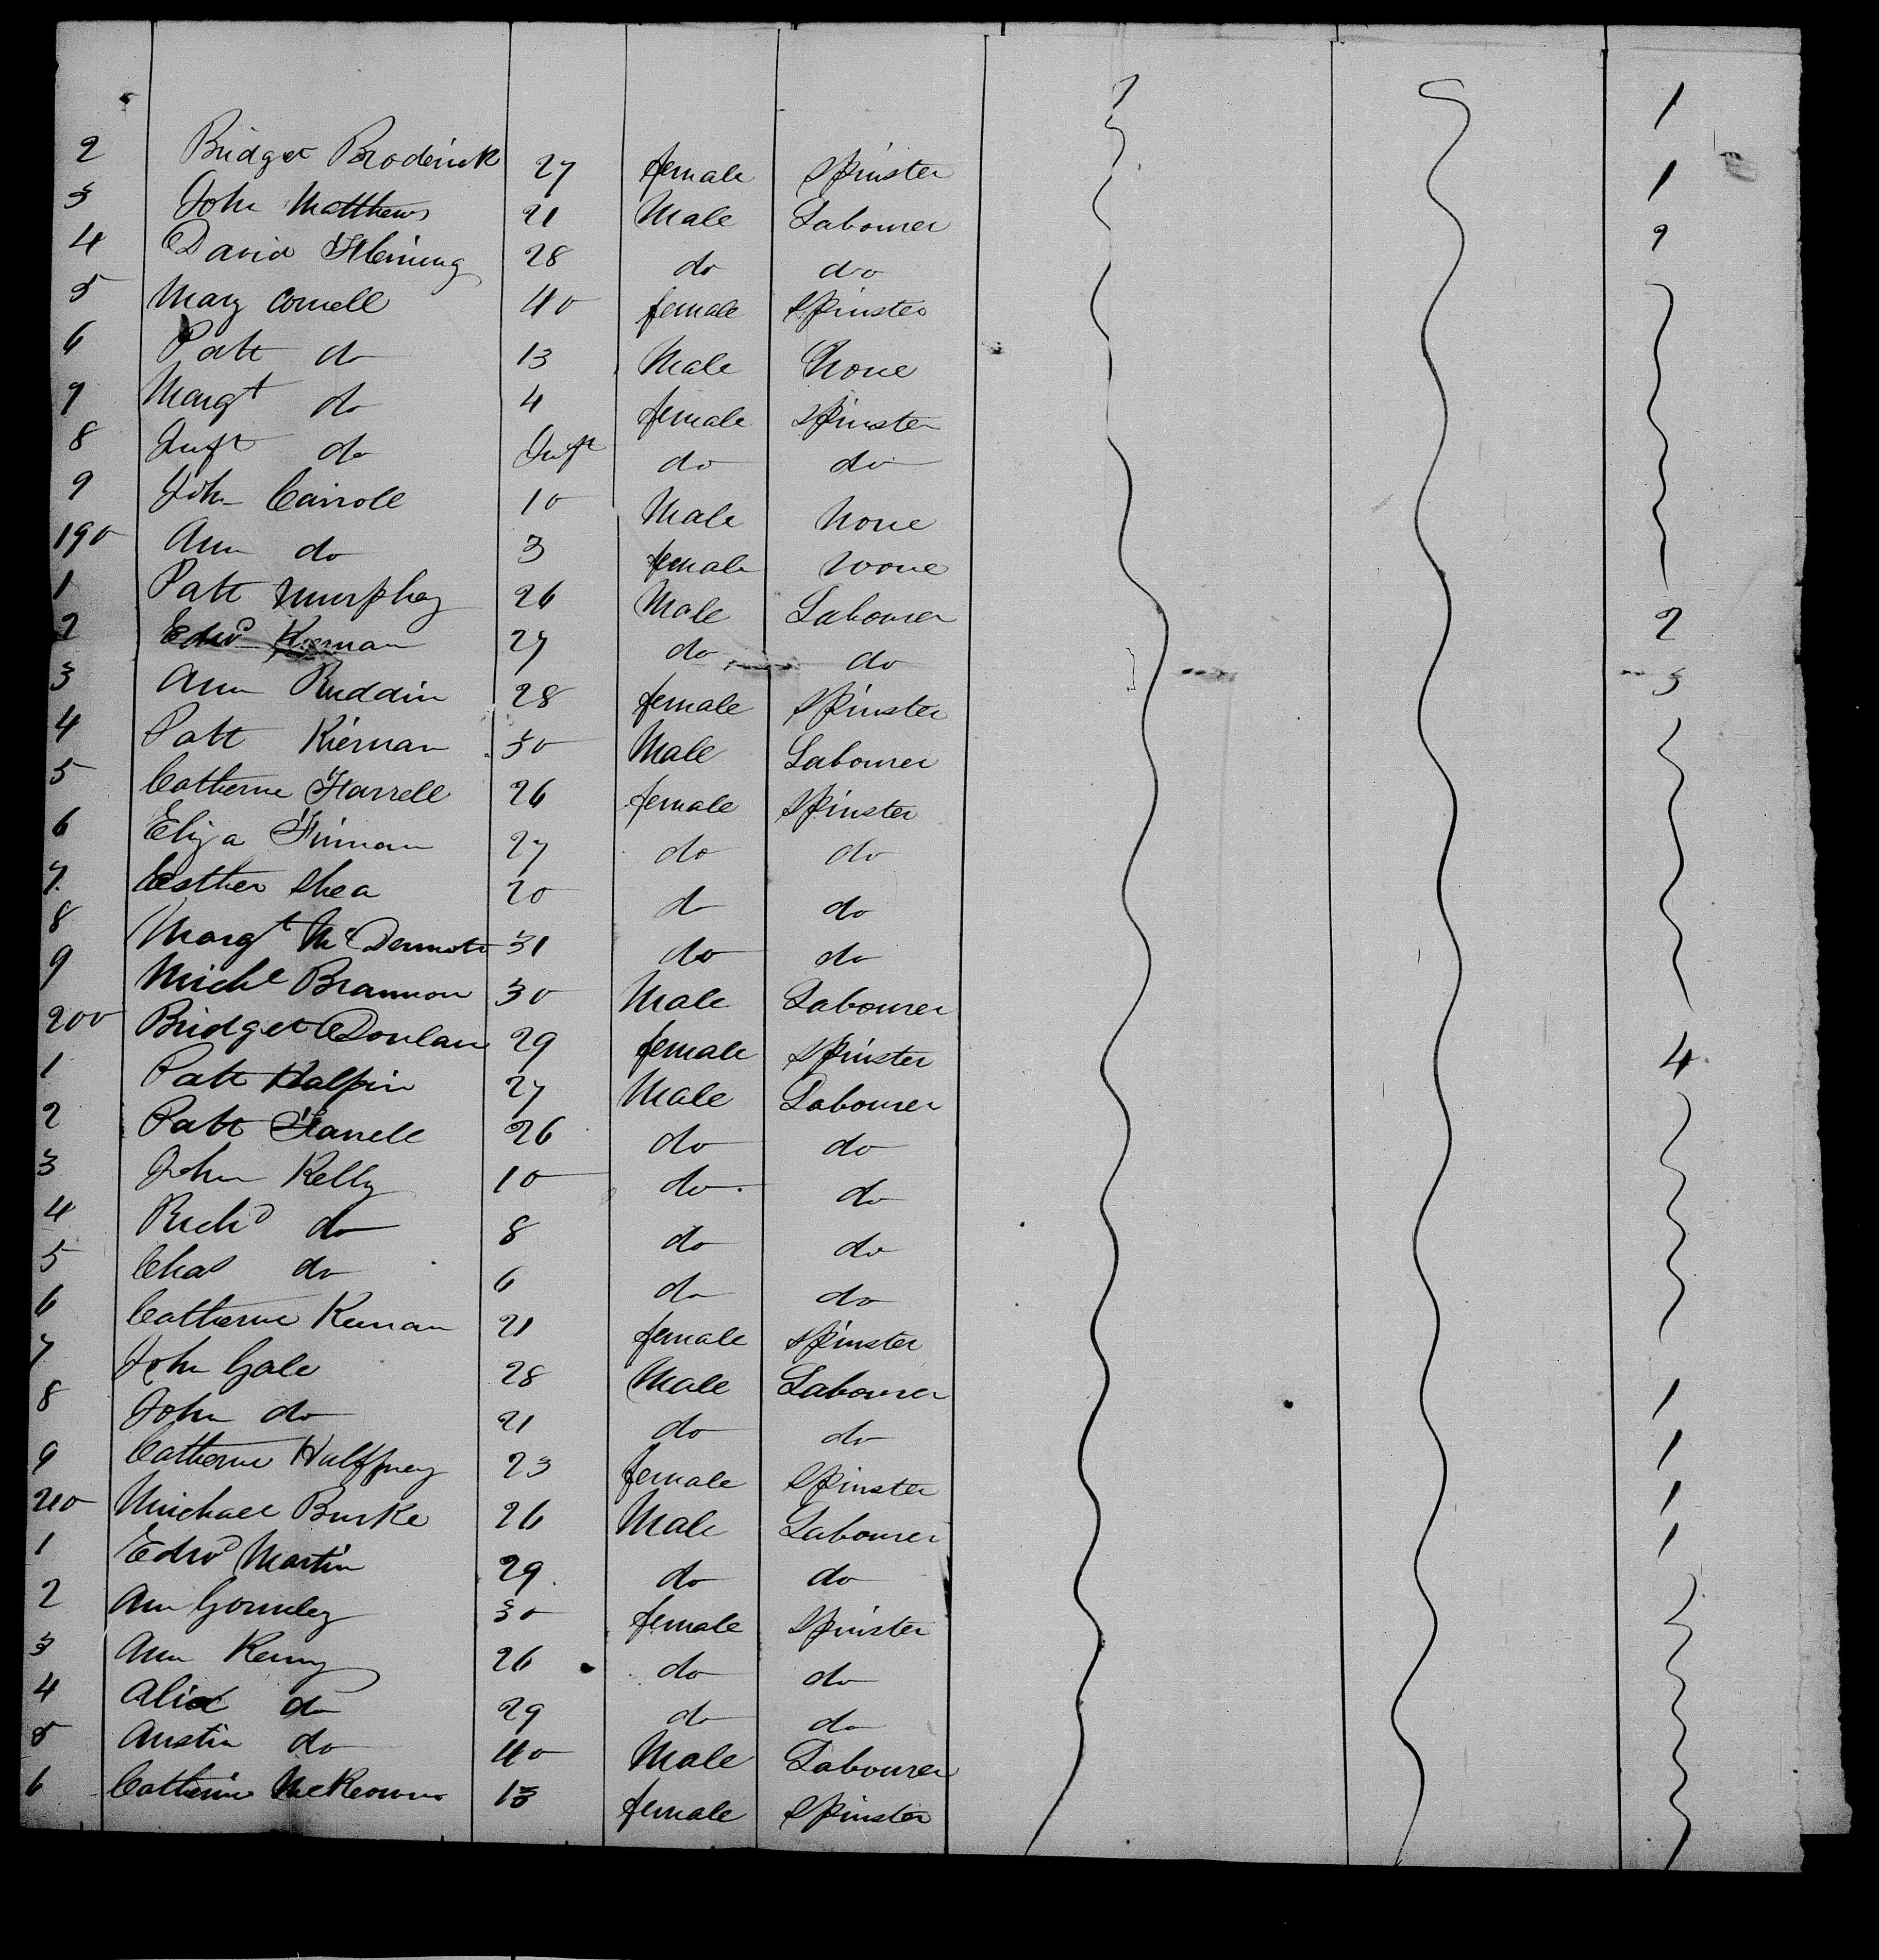 1
2 Bridget Broderick 27 female Spinster 1
3 John Matthews 21 Male Labourer 2
4 David Fleming 28 do do
5 Mary Connell 40 female Spinster
6 Patt do 13 Male None
7 Margt do 4 female Spinster
8 Inft do Inft do do
9 John Carroll 10 Male None
190 Ann do 3 female None
1 Patt Murphey 26 Male Labourer 2
2 Edwd Kiernan 27 do do 3
3 Ann Ruddin 28 female Spinster
4 Patt Kiernan 30 Male Labourer
5 Catherine Farrell 26 female Spinster
6 Eliza 27 do do
7 Esther Shea 20 do do
8 Margt McDermott 31 do do
9 Michl Brannon 30 Male Labourer
200 Bridget Donlan 29 female Spinster 4
1 Patt Halpin 27 Male Labourer
2 Patt Farrell 26 do do
3 John Kelly 10 do do
4 Richd do 8 do do
5 Chas do 6 do do
6 Catherine Keenan 21 female Spinster
7 John Gale 28 Male Labourer 1
8 John do 21 do do 1
9 Catherine 23 female Spinster 1
210 Michael Burke 26 Male Labourer 1
1 Edwd Martin 29 do do
2 Ann Gormley 30 female Spinster
3 Ann Kenny 26 do do
4 do 29 do do
5 Austin do 40 Male Labourer
6 Catherine McKeown 13 female Spinster